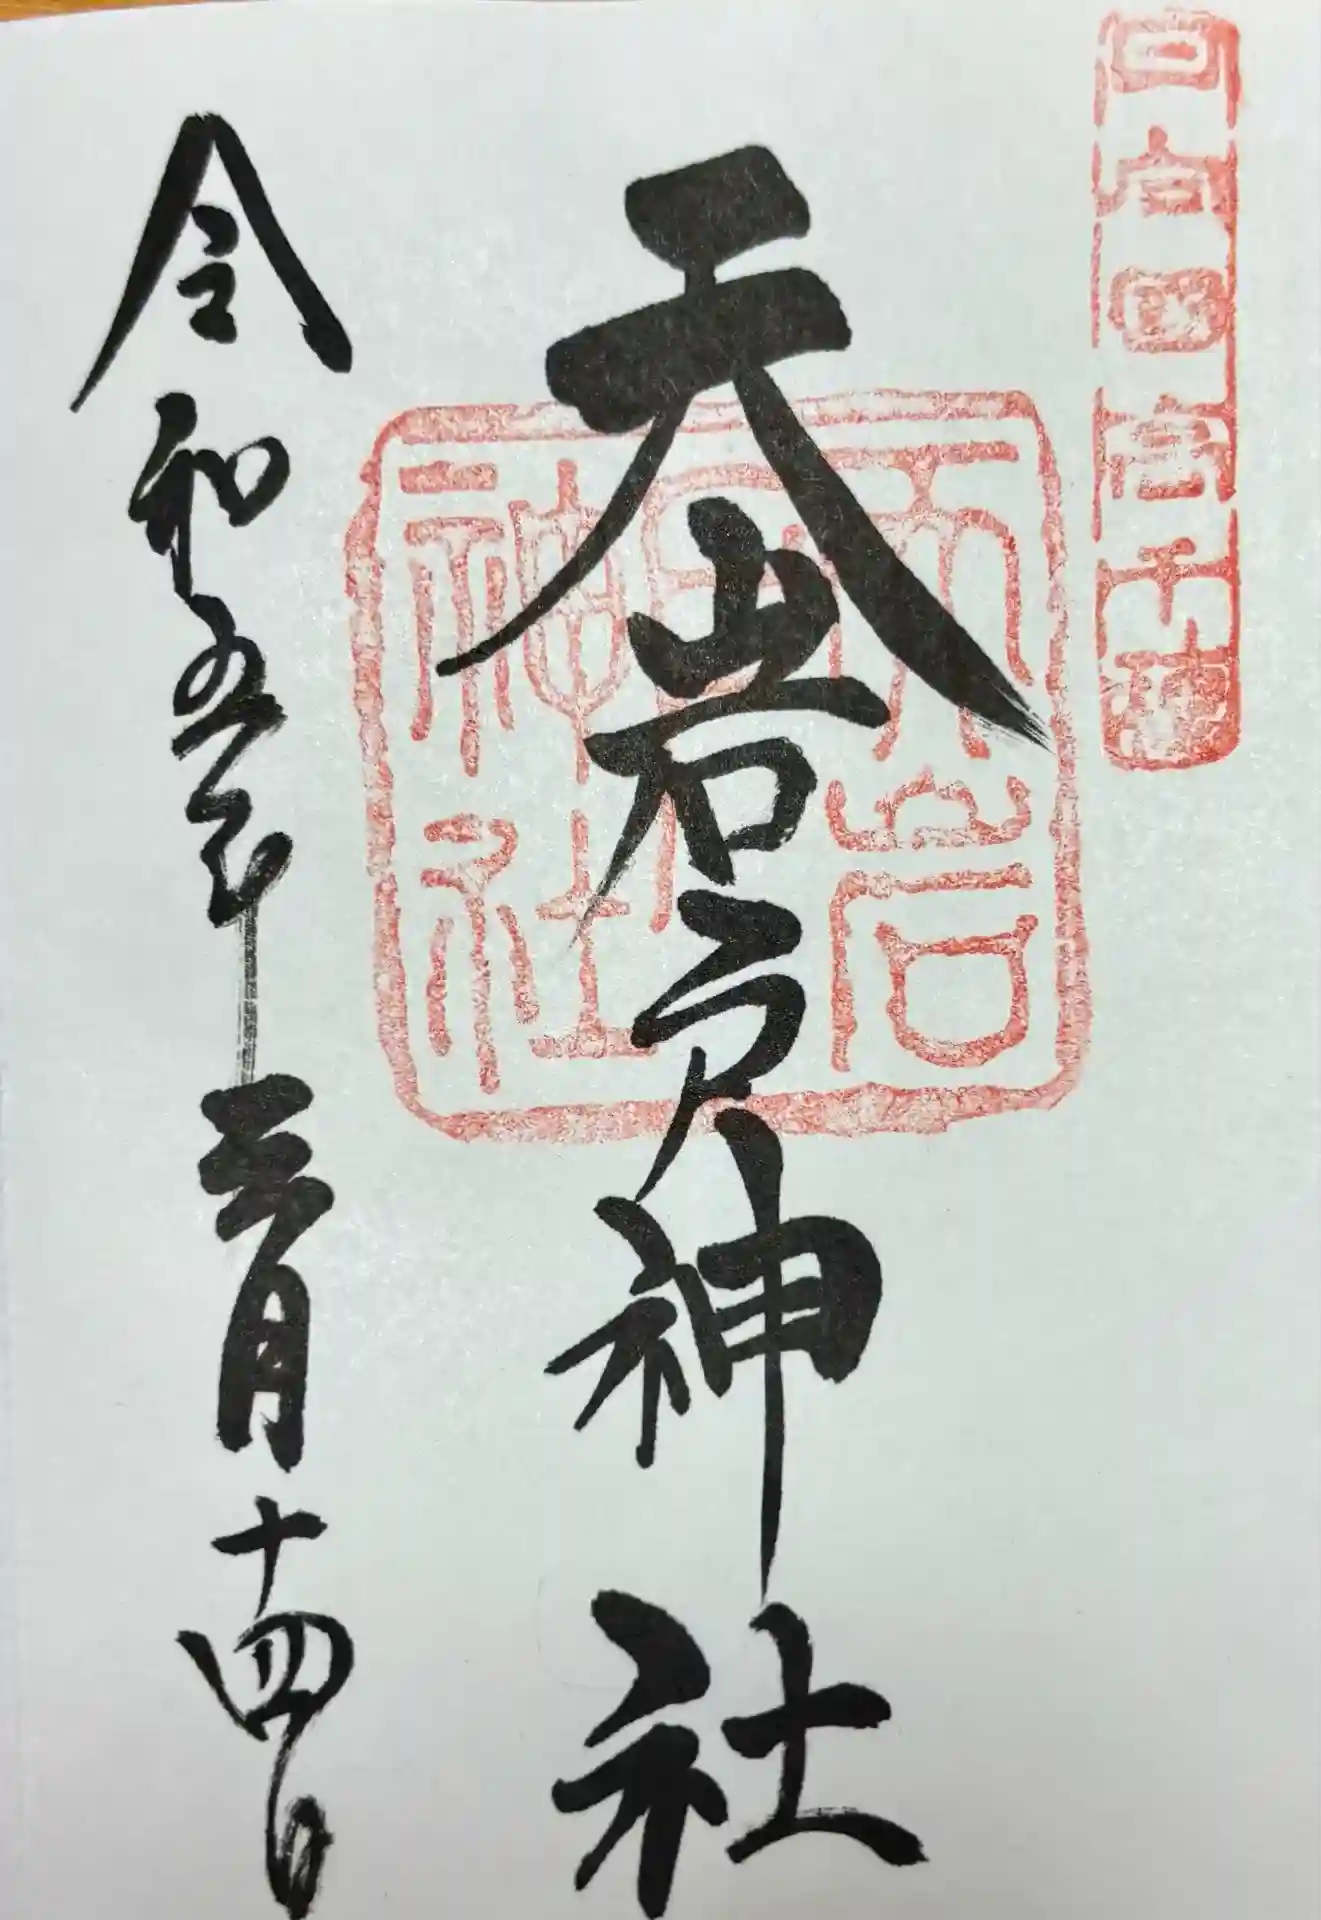 日向国高千穂
天岩戸神社
天岩戸神社
令和五年三月十四日